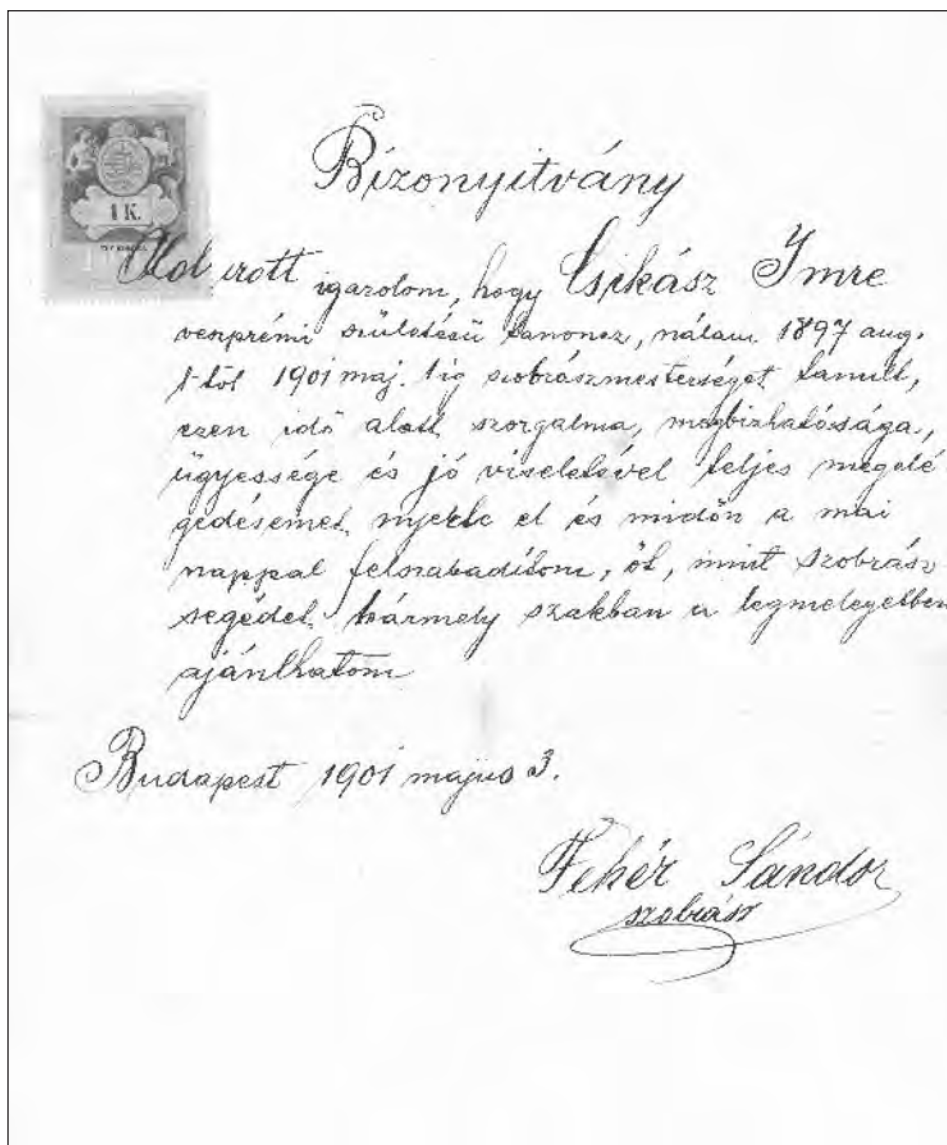 1 K.
Bizonyitvány
Alol irott igazolom, hogy Csikász Imre
veszprémi születésü tanoncz, nálam 1897 aug.
1-től 1901 maj. 1 ig szobrászmesterséget tanult,
ezen idő alatt szorgalma, megbizhatósága,
ügyessége és jó viseletével teljes megelé
gedésemet nyerte el és midőn a mai
nappal felszabadítom, őt, mint szobrász
segédet bármely szakban a legmelegebben
ajánlhatom
Budapest 1901 május 3.
Fehér Sándor
szobrász